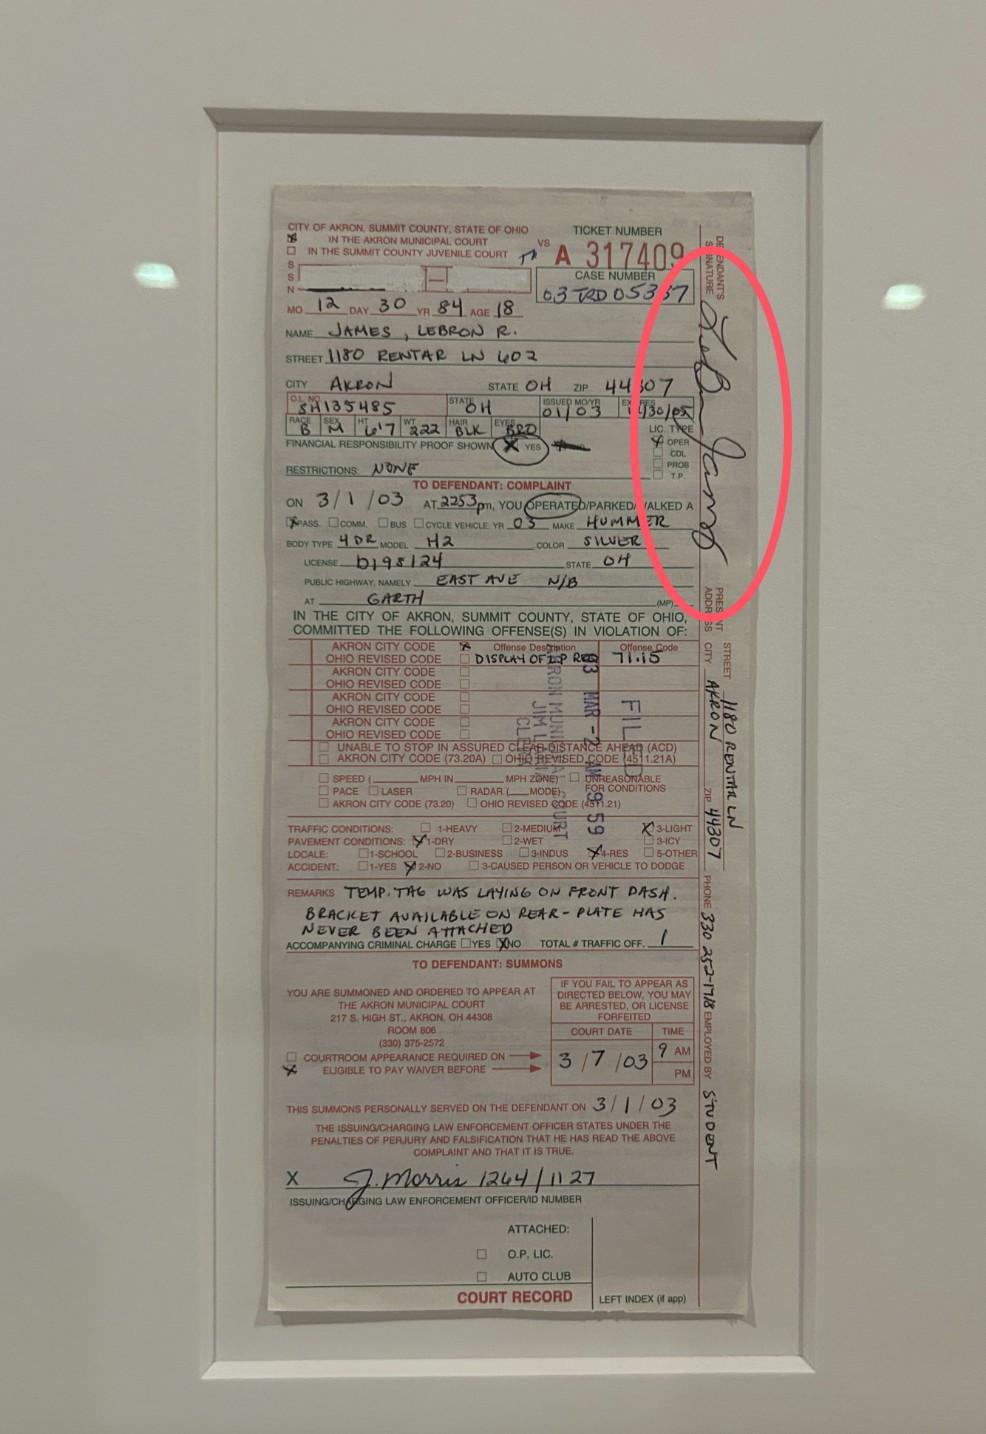 CITY OF AKRON, SUMMIT COUNTY, STATE OF OHIO
X IN THE AKRON MUNICIPAL COURT
IN THE SUMMIT COUNTY JUVENILE COURT
VS
TICKET NUMBER
A 317409
CASE NUMBER
03 TRD 05337
S
S
N
MO. 12 DAY 30 YR 84 AGE 18
NAME JAMES, LEBRON R.
STREET 1180 RENTAR LN 602
CITY AKRON STATE OH ZIP 44307
O.L. NO. SH135485 STATE OH ISSUED MO/YR 01/03 EXPIRES 12/30/05
RACE B SEX M HT 6'7 WT 222 HAIR BLK EYES BRO
LIC. TYPE
X OPER
CDL
PROB
T.P.
FINANCIAL RESPONSIBILITY PROOF SHOWN X YES
RESTRICTIONS: NONE
TO DEFENDANT: COMPLAINT
ON 3/1/03 AT 2253 pm, YOU OPERATED/PARKED/WALKED A
X PASS. COMM. BUS CYCLE VEHICLE YR 03 MAKE HUMMER
BODY TYPE 4 DR MODEL H2 COLOR SILVER
LICENSE D198124 STATE OH
PUBLIC HIGHWAY, NAMELY EAST AVE N/B
AT GARTH (MP)
IN THE CITY OF AKRON, SUMMIT COUNTY, STATE OF OHIO,
COMMITTED THE FOLLOWING OFFENSE(S) IN VIOLATION OF:
AKRON CITY CODE X Offense Description Offense Code
OHIO REVISED CODE DISPLAY OF LP REQ 71.15
AKRON CITY CODE
OHIO REVISED CODE
AKRON CITY CODE
OHIO REVISED CODE
AKRON CITY CODE
OHIO REVISED CODE
UNABLE TO STOP IN ASSURED CLEAR DISTANCE AHEAD (ACD)
AKRON CITY CODE (73.20A) OHIO REVISED CODE (4511.21A)
SPEED ( MPH IN MPH ZONE) UNREASONABLE
FOR CONDITIONS
PACE LASER RADAR ( MODE)
AKRON CITY CODE (73.20) OHIO REVISED CODE (4511.21)
FILED
03 MAR -2 AM 9 59
AKRON MUNICIPAL COURT
JIM
CLERK
TRAFFIC CONDITIONS: 1-HEAVY 2-MEDIUM X 3-LIGHT
PAVEMENT CONDITIONS: X 1-DRY 2-WET 3-ICY
LOCALE: 1-SCHOOL 2-BUSINESS 3-INDUS X 4-RES 5-OTHER
ACCIDENT: 1-YES X 2-NO 3-CAUSED PERSON OR VEHICLE TO DODGE
REMARKS TEMP. TAG WAS LAYING ON FRONT DASH.
BRACKET AVAILABLE ON REAR - PLATE HAS
NEVER BEEN ATTACHED
ACCOMPANYING CRIMINAL CHARGE YES X NO TOTAL # TRAFFIC OFF. 1
TO DEFENDANT: SUMMONS
YOU ARE SUMMONED AND ORDERED TO APPEAR AT
THE AKRON MUNICIPAL COURT
217 S. HIGH ST., AKRON, OH 44308
ROOM 806
(330) 375-2572
COURTROOM APPEARANCE REQUIRED ON
X ELIGIBLE TO PAY WAIVER BEFORE
IF YOU FAIL TO APPEAR AS
DIRECTED BELOW, YOU MAY
BE ARRESTED, OR LICENSE
FORFEITED
COURT DATE TIME
3/7/03 9 AM
PM
THIS SUMMONS PERSONALLY SERVED ON THE DEFENDANT ON 3/1/03
THE ISSUING/CHARGING LAW ENFORCEMENT OFFICER STATES UNDER THE
PENALTIES OF PERJURY AND FALSIFICATION THAT HE HAS READ THE ABOVE
COMPLAINT AND THAT IT IS TRUE.
X J. Morris 1264/1127
ISSUING/CHARGING LAW ENFORCEMENT OFFICER/ID NUMBER
ATTACHED:
O.P. LIC.
AUTO CLUB
COURT RECORD
LEFT INDEX (if app)
DEFENDANT'S
SIGNATURE LeBron James
PRESENT
ADDRESS
STREET 1180 RENTAR LN
CITY AKRON ZIP 44307 PHONE 330 252-1718 EMPLOYED BY STUDENT